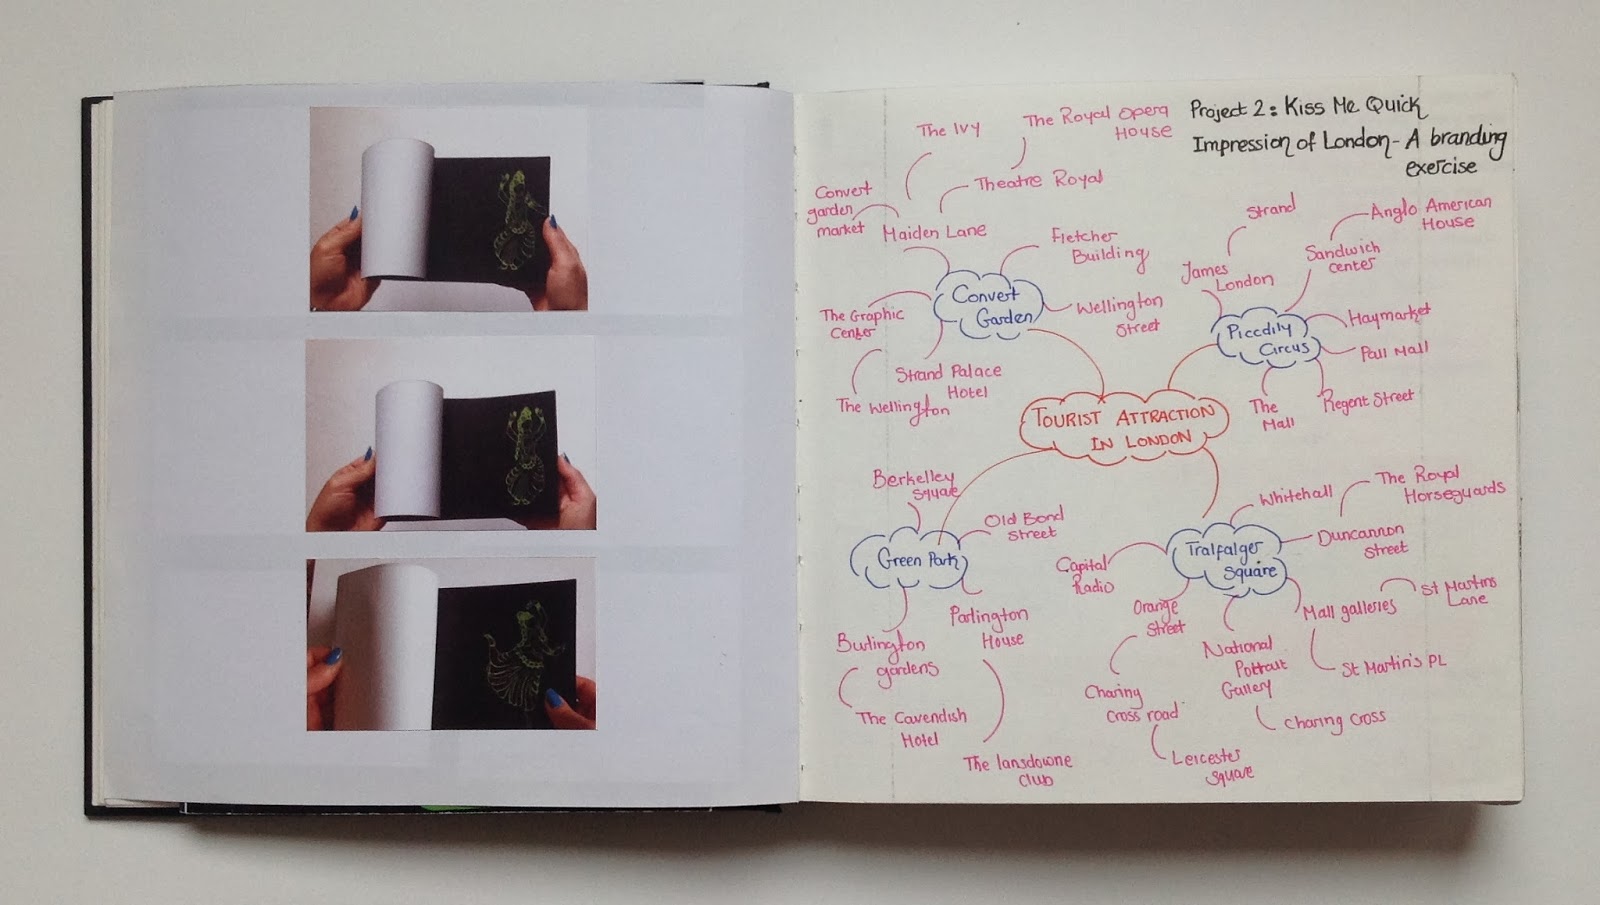 Project 2: Kiss Me Quick
Impression of London - A branding
exercise
The Ivy
The Royal Opera
House
Theatre Royal
Convert
garden
market
Maiden Lane
Fletcher
Building
Convert
Garden
Wellington
Street
The Graphic
Center
Strand Palace
Hotel
The Wellington
Strand
Anglo American
House
Sandwich
center
James
London
Piccdily
Circus
Haymarket
Pall Mall
The
Mall
Regent Street
TOURIST ATTRACTION
IN LONDON
Berkelley
Square
Old Bond
Street
Green Park
Parlington
House
Burlington
gardens
The Cavendish
Hotel
The lansdowne
club
Whitehall
The Royal
Horseguards
Duncannon
Street
Tralfalger
Square
Capital
Radio
Orange
Street
Mall galleries
St Martins
Lane
St Martin's PL
National
Portrait
Gallery
Charing Cross
Charing
Cross road
Leicester
Square